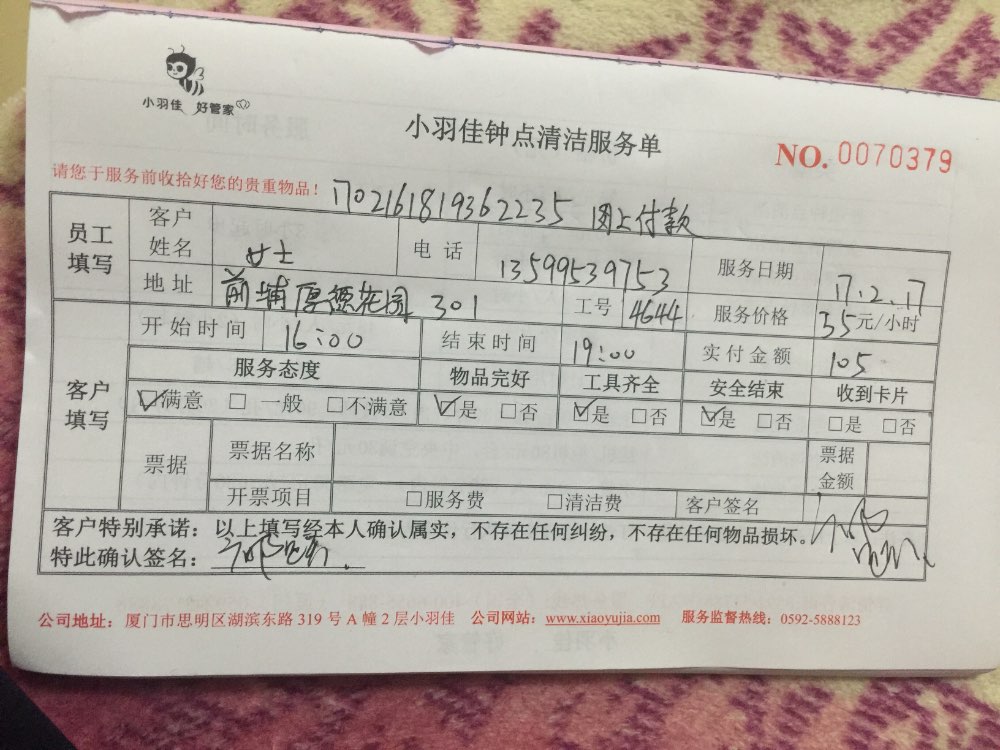 小羽佳 好管家
小羽佳钟点清洁服务单
NO. 0070379
请您于服务前收拾好您的贵重物品!
1702161819362235 网上付款
员工填写 客户姓名 女士 电话 13599539753 服务日期 17.2.17
地址 前埔厚德花园 301 工号 4644 服务价格 35元/小时
开始时间 16:00 结束时间 19:00 实付金额 105
客户填写 服务态度 物品完好 工具齐全 安全结束 收到卡片
☑满意 □一般 □不满意 ☑是 □否 ☑是 □否 ☑是 □否 □是 □否
票据 票据名称 票据金额
开票项目 □服务费 □清洁费 客户签名
客户特别承诺：以上填写经本人确认属实，不存在任何纠纷，不存在任何物品损坏。
特此确认签名：
公司地址：厦门市思明区湖滨东路 319 号 A 幢 2 层小羽佳 公司网站：www.xiaoyujia.com 服务监督热线：0592-5888123